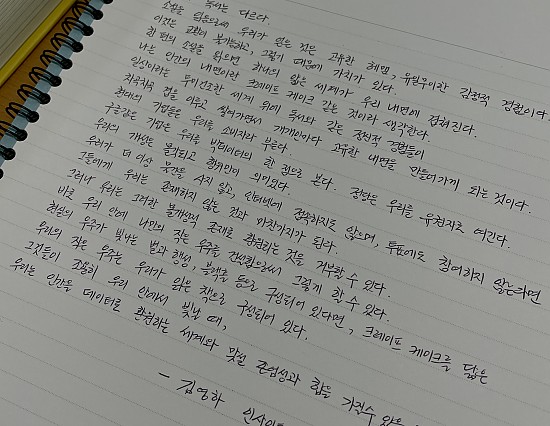 독서는 다르다.
소설을 읽음으로써 우리가 얻은 것은 고유한 헤맴, 유일무이한 감정적 경험이다.
이것은 교환이 불가능하고, 그렇기 때문에 가치가 있다.
한 편의 소설을 읽으면 하나의 얇은 세계가 우리 내면에 겹쳐진다.
나는 인간의 내면이란 크레이프 케이크 같은 것이라 생각한다.
일상이라는 무미건조한 세계 위에 독서와 같은 정신적 경험들이
차곡차곡 겹을 이루고 쌓아가면서 개개인마다 고유한 내면을 만들어가게 되는 것이다.
현대의 기업들은 우리를 소비자라 부른다.
구글같은 기업은 우리를 빅데이터의 한 점으로 본다. 정당은 우리를 유권자로 여긴다.
우리의 개성은 몰각되고 행위만이 의미있다.
우리가 더 이상 물건을 사지 않고, 인터넷에 접속하지도 않으며, 투표에도 참여하지 않는다면
그들에게 우리는 존재하지 않는 것과 마찬가지가 된다.
그러나 우리는 그러한 몰개성적 존재로 환원되는 것을 거부할 수 있다.
바로 우리 안에 나만의 작은 우주를 건설함으로써 그렇게 할 수 있다.
현실의 우주가 빛나는 별과 행성, 블랙홀 등으로 구성되어 있다면, 크레이프 케이크를 닮은
우리의 작은 우주는 우리가 읽은 책으로 구성되어 있다.
그것들이 조용히 우리 안에서 빛날 때,
우리는 인간을 데이터로 환원하는 세계와 맞설 존엄성과 힘을 가질수 있을
- 김영하